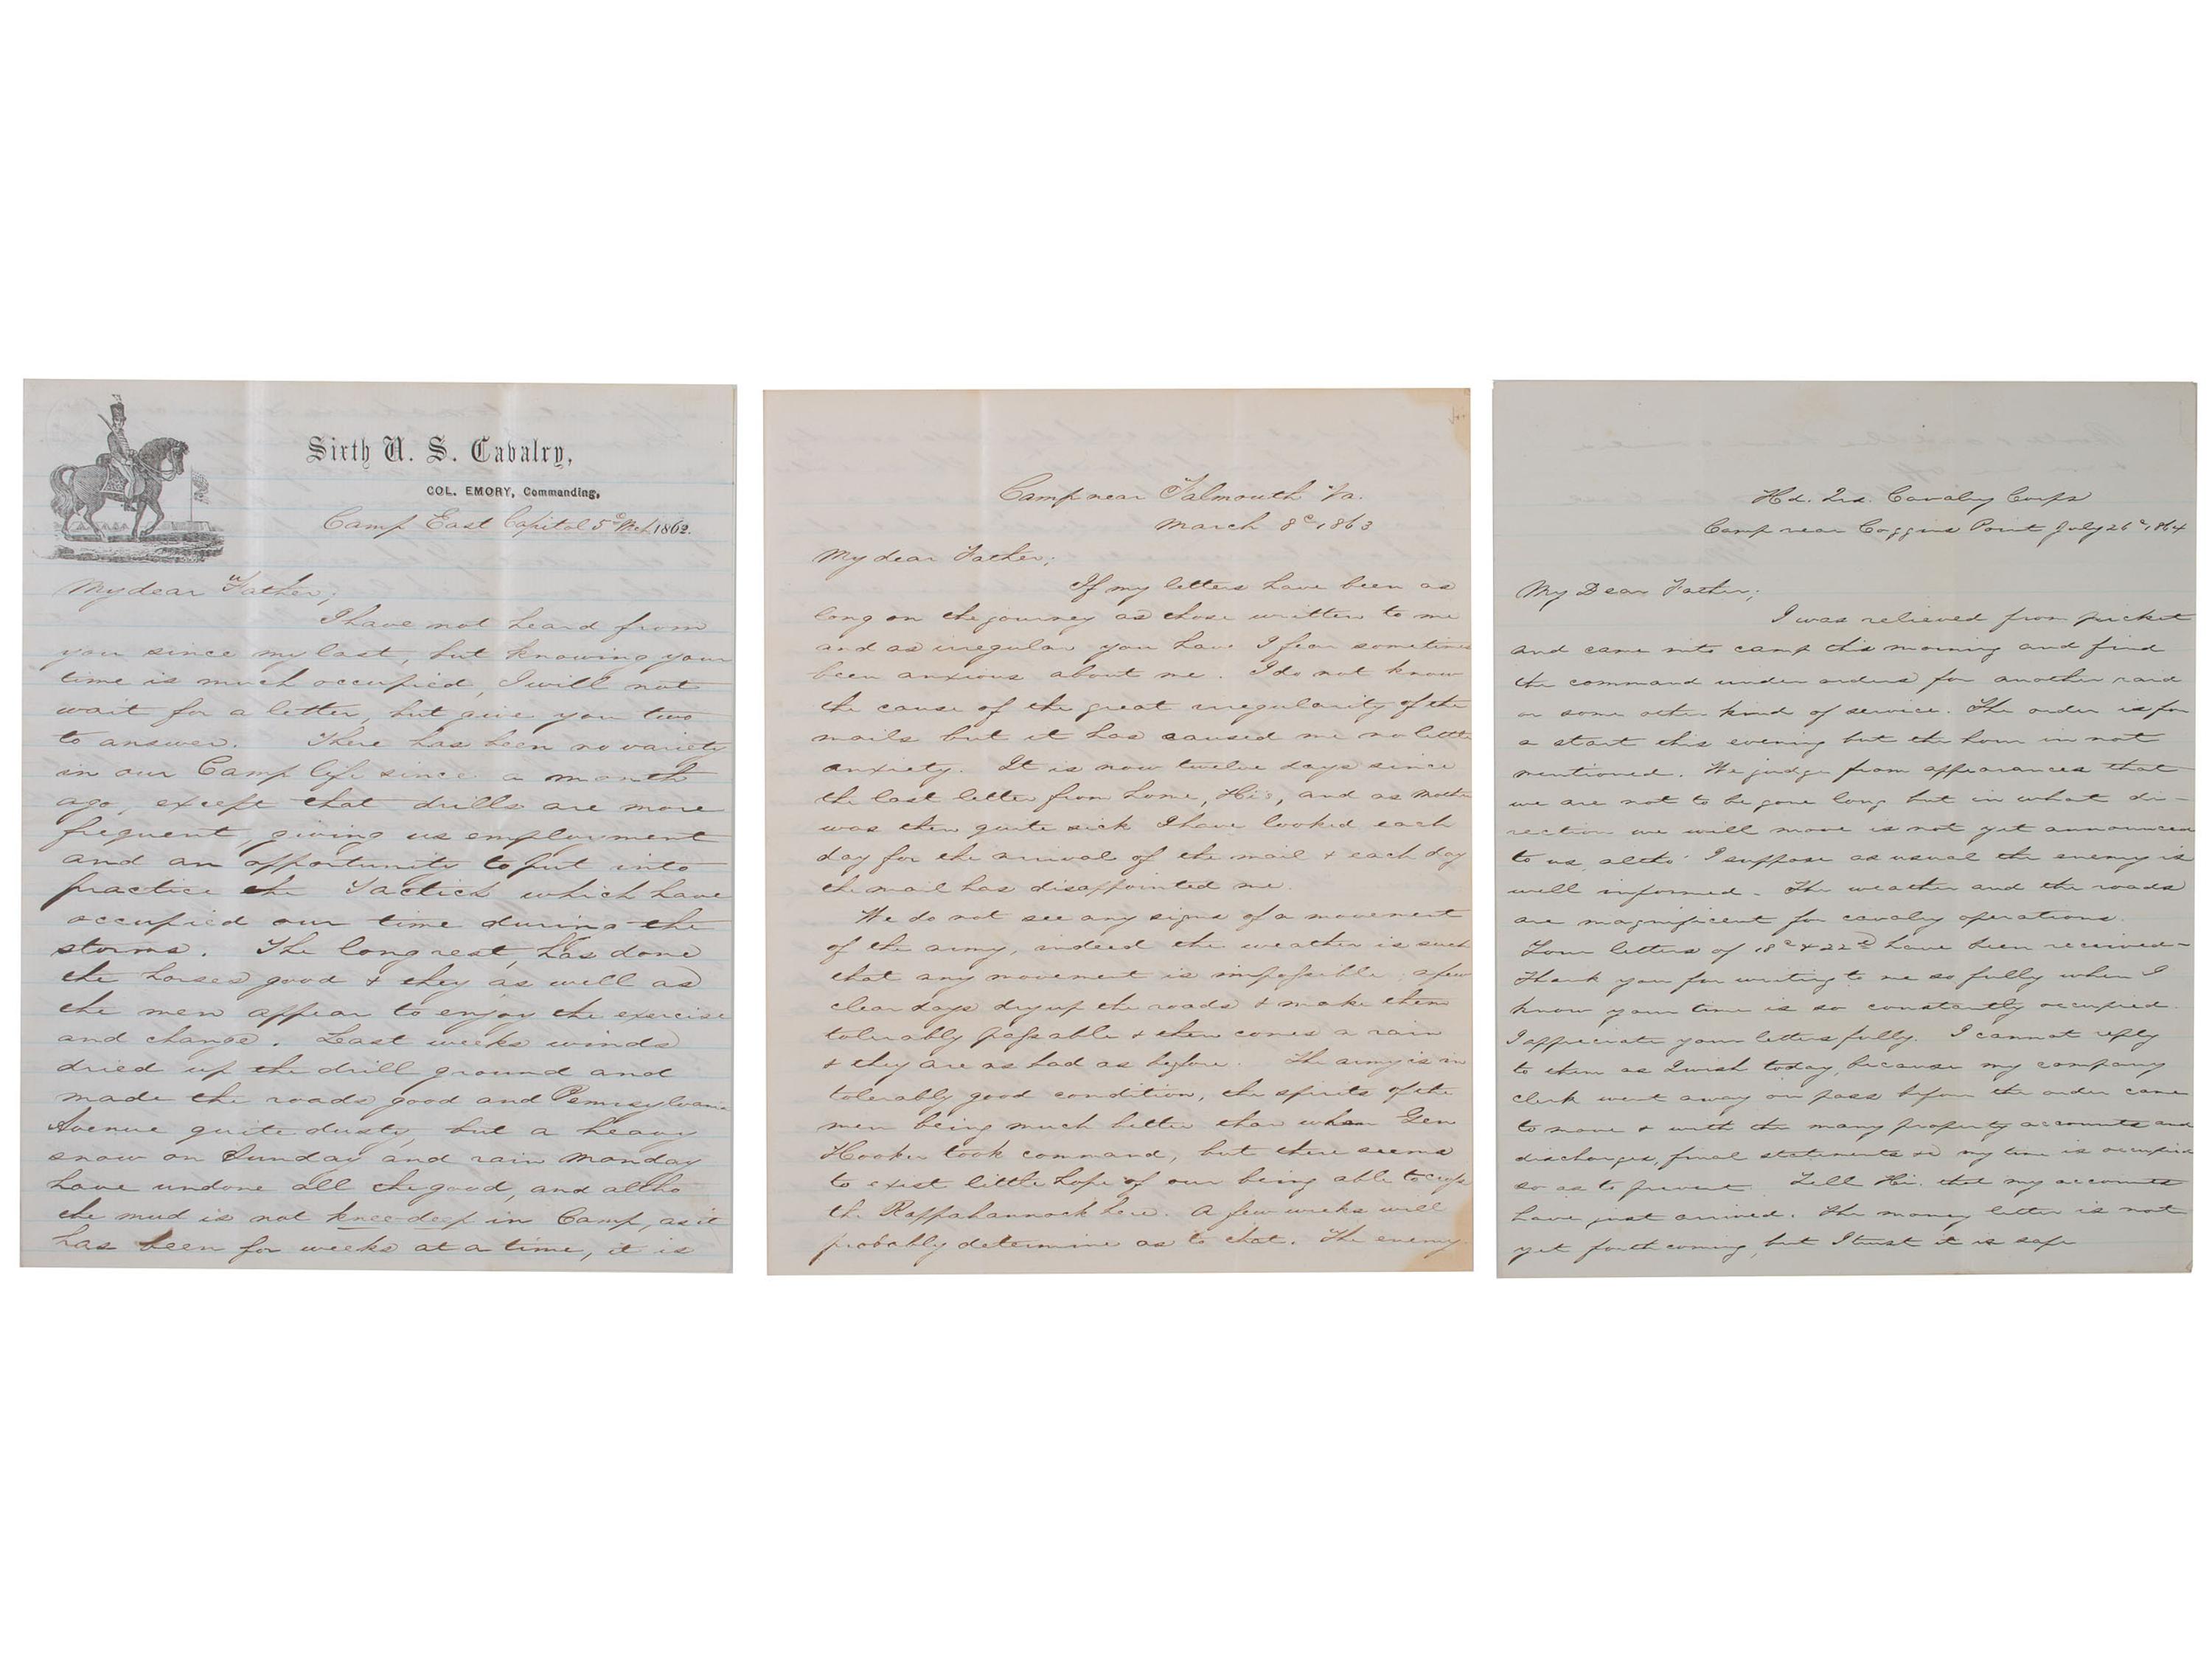 Sixth U. S. Cavalry,
COL. EMORY, Commanding,
Camp East Capitol 5th Mch 1862.
My dear Father;
I have not heard from
you since my last, but knowing your
time is much occupied, I will not
wait for a letter, but give you two
to answer. There has been no variety
in our Camp life since a month
ago, except that drills are more
frequent, giving us employment
and an opportunity to put into
practice the Tactics which have
occupied our time during the
storms. The long rest, has done
the horses good & they as well as
the men appear to enjoy the exercise
and change. Last weeks winds
dried up the drill ground and
made the roads good and Pennsylvania
Avenue quite dusty, but a heavy
snow on Sunday and rain Monday
have undone all the good, and altho
the mud is not knee-deep in Camp, as it
has been for weeks at a time, it is
Camp near Falmouth Va.
March 8th, 1863
My dear Father;
If my letters have been as
long on the journey as those written to me
and as irregular you have I fear sometimes
been anxious about me. I do not know
the cause of the great irregularity of the
mails but it has caused me no little
anxiety. It is now twelve days since
the last letter from home, Hi's, and as Mother
was then quite sick I have looked each
day for the arrival of the mail & each day
the mail has disappointed me.
We do not see any signs of a movement
of the army, indeed the weather is such
that any movement is impossible; a few
clear days dry up the roads & make them
tolerably passable & then comes a rain
& they are as bad as before. The army is in
tolerably good condition, the spirits of the
men being much better than when Gen
Hooker took command, but there seems
to exist little hope of our being able to cross
the Rappahannock here. A few weeks will
probably determine as to that. The enemy
Hd. Qrs. Cavalry Corps
Camp near Coggins Point July 26th, 1864
My Dear Father;
I was relieved from picket
and came into camp this morning and find
the command under orders for another raid
or some other kind of service. The order is for
a start this evening but the hour in not
mentioned. We judge from appearances that
we are not to be gone long but in what di-
rection we will move is not yet announced
to us, altho' I suppose as usual the enemy is
well informed. The weather and the roads
are magnificent for cavalry operations.
Your letters of 18th & 22d have been received-
Thank you for writing to me so fully when I
know your time is so constantly occupied.
I appreciate your letters fully. I cannot reply
to them as I wish today, because my company
clerk went away on pass before the order came
to move & with the many property accounts and
discharges, final statements &c my time is occupied
so as to prevent. Tell Hi. that my accounts
have just arrived. The money letter is not
yet forthcoming, but I trust it is safe